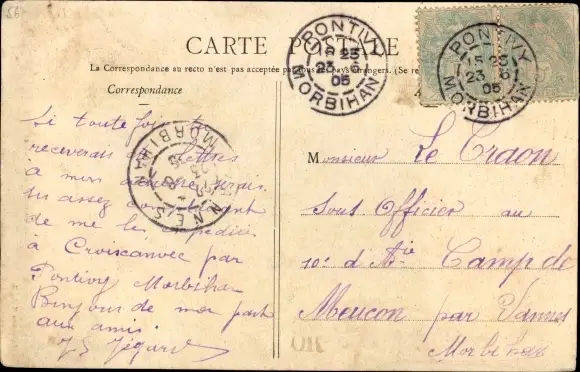 56
CARTE POSTALE
La Correspondance au recto n'est pas acceptée par tous les pays étrangers. (Se re
Correspondance
PONTIVY
15 25
23 6
05
MORBIHAN
PONTIVY
15 25
23 6
05
MORBIHAN
VANNES
MORBIHAN
Si toutefois tu
receverais lettres
à mon
assez
de me les expédier
à Croixanvec par
Pontivy Morbihan
Bonjour de ma part
aux amis
Monsieur Le Craon
Sous Officier au
10e d'Atie Camp de
Meucon par Vannes
Morbihan